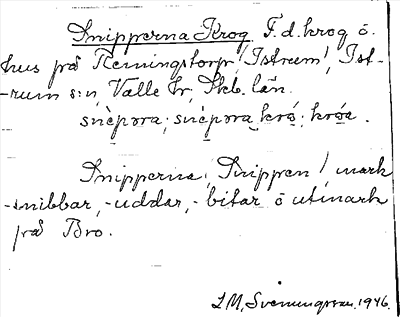 Snipperna Krog F.d. krog ö.
hus på Flemingstorp, Istrum, Ist-
-rum s:n, Valle hr, Skb. län.
snèpəra; snèpəra krå; króa.
Snipperna, Snippen / mark
-snibbar, -uddar, -bitar ö utmark
på Bro.
S. M. Svenungsson. 1946.